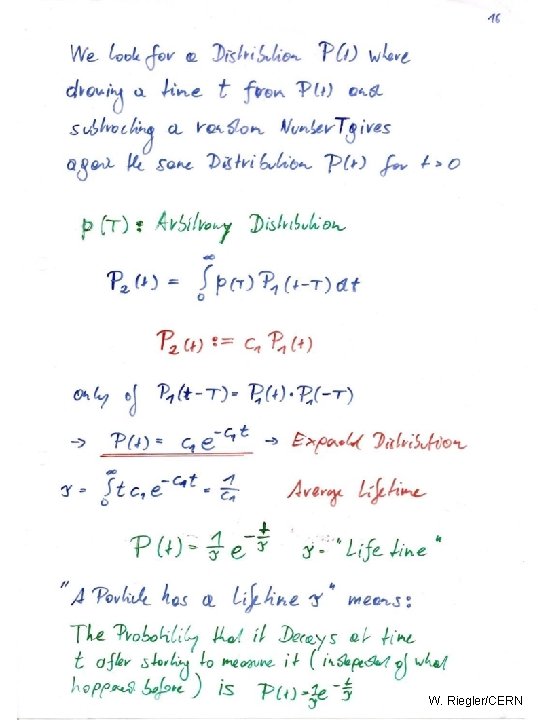 16
We look for a Distribution P(t) where
drawing a time t from P(t) and
subtracting a random Number T gives
again the same Distribution P(t) for t>0
p(T): Arbitrary Distribution
P₂(t) = ∫₀^∞ p(T) P₁(t-T) dt
P₂(t) := c₁ P₁(t)
only if P₁(t-T) = P₁(t)·P₁(-T)
→ P(t) = c₁e^(-c₁t) → Distribution
τ = ∫₀^∞ t c₁e^(-c₁t) = 1/c₁ Average Lifetime
P(t) = 1/τ e^(-t/τ) τ = "Lifetime"
"A Particle has a Lifetime τ" means:
The Probability that it Decays at time
t after starting to measure it (independent of what
happened before) is P(t) = 1/τ e^(-t/τ)
W. Riegler/CERN